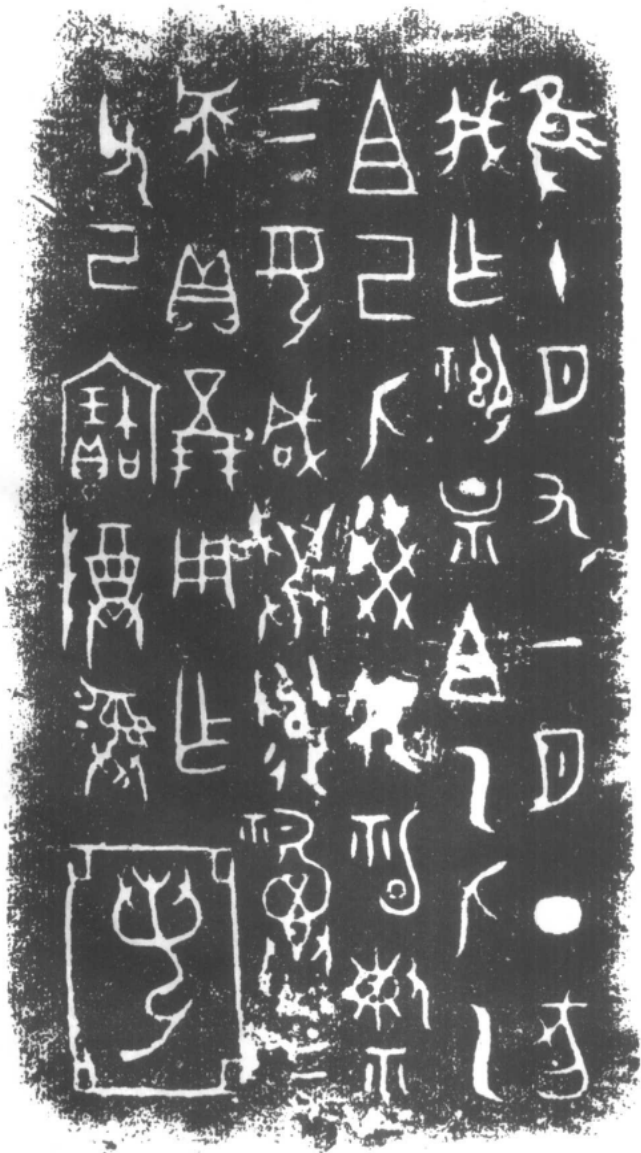 隹十月又一月丁亥
我乍禦且乙匕乙
且己匕癸
二母咸與遣祼二
貝五朋用乍
父己寶尊彝亞若